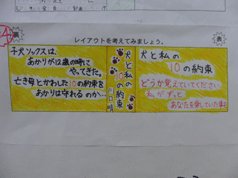 裏
レイアウトを考えてみましょう。
表
子犬ソックスは、
あかりが12歳の時に
やってきた。
亡き母とかわした10の約束を
あかりは守れるのか…
犬と私の10の約束
犬と私の
10の約束
どうか覚えていてください
私がずっと
あなたを愛していた事を